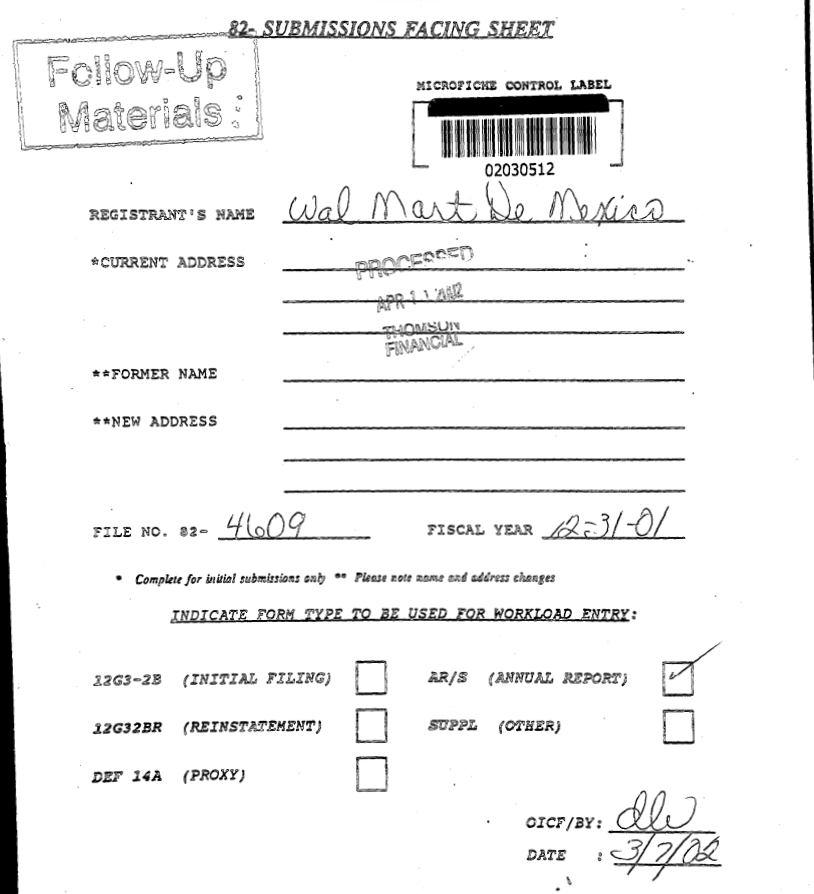 82- SUBMISSIONS FACING SHEET
Follow-Up
Materials
MICROFICHE CONTROL LABEL
02030512
REGISTRANT'S NAME Wal Mart De Mexico
*CURRENT ADDRESS
PROCESSED
APR 11 2002
THOMSON
FINANCIAL
**FORMER NAME
**NEW ADDRESS
FILE NO. 82- 4609 FISCAL YEAR 12-31-01
* Complete for initial submissions only ** Please note name and address changes
INDICATE FORM TYPE TO BE USED FOR WORKLOAD ENTRY:
12G3-2B (INITIAL FILING) AR/S (ANNUAL REPORT)
12G32BR (REINSTATEMENT) SUPPL (OTHER)
DEF 14A (PROXY)
OICF/BY: dlw
DATE : 3/7/02